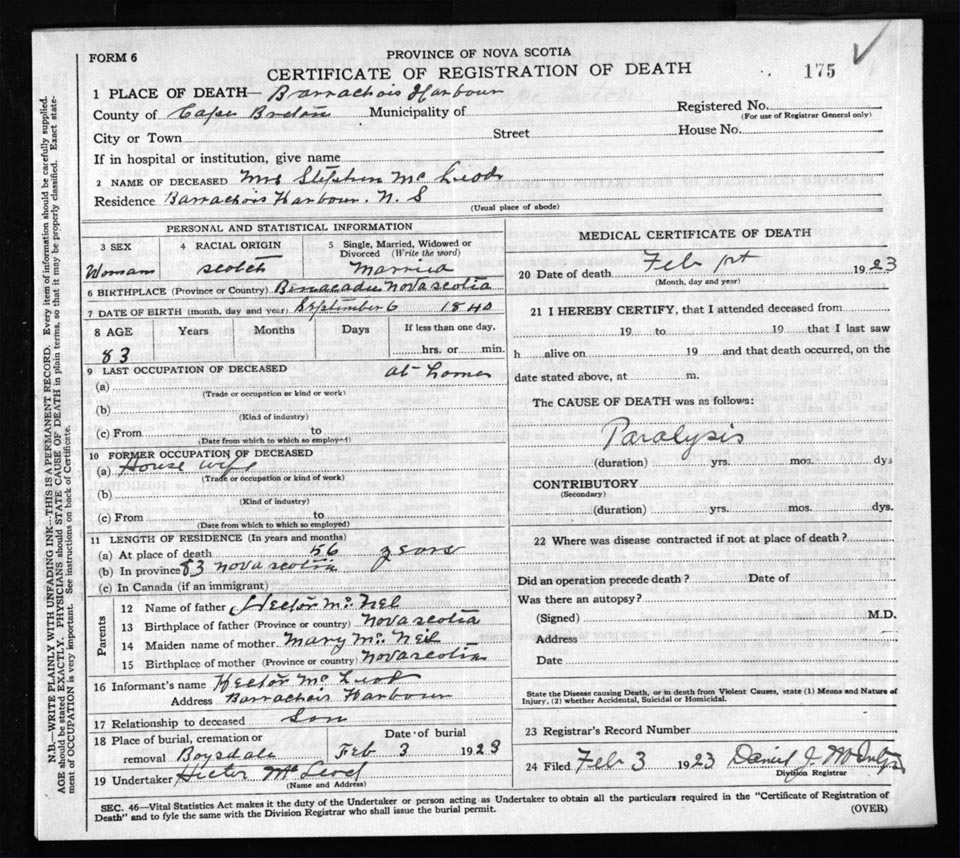 FORM 6
PROVINCE OF NOVA SCOTIA
CERTIFICATE OF REGISTRATION OF DEATH
175
1 PLACE OF DEATH— Barrachois Harbour
County of Cape Breton Municipality of Registered No.
(For use of Registrar General only)
City or Town Street House No.
If in hospital or institution, give name
2 NAME OF DECEASED Mrs Stephen Mc Leod
Residence Barrachois Harbour. N. S
(Usual place of abode)
PERSONAL AND STATISTICAL INFORMATION
3 SEX 4 RACIAL ORIGIN 5 Single, Married, Widowed or
Divorced (Write the word)
Woman scotch Married
6 BIRTHPLACE (Province or Country) Benacadie Nova scotia
7 DATE OF BIRTH (month, day and year) September 6 1840
8 AGE Years Months Days If less than one day,
83 hrs. or min.
9 LAST OCCUPATION OF DECEASED at home
(a)
(Trade or occupation or kind or work)
(b)
(Kind of industry)
(c) From to
(Date from which to which so employed)
10 FORMER OCCUPATION OF DECEASED
(a) House wife
(Trade or occupation or kind of work)
(b)
(Kind of industry)
(c) From to
(Date from which to which so employed)
11 LENGTH OF RESIDENCE (In years and months)
(a) At place of death 56 years
(b) In province 83 nova scotia
(c) In Canada (if an immigrant)
Parents
12 Name of father Hector Mc Nel
13 Birthplace of father (Province or country) Nova scotia
14 Maiden name of mother Mary Mc Neil
15 Birthplace of mother (Province or country) Nova scotia
16 Informant's name Hector Mc Leod
Address Barrachois Harbour
17 Relationship to deceased Son
18 Place of burial, cremation or Date of burial
removal Boysdale Feb 3 1923
19 Undertaker Hector Mc Leod
(Name and Address)
MEDICAL CERTIFICATE OF DEATH
20 Date of death Feb 1st 1923
(Month, day and year)
21 I HEREBY CERTIFY, that I attended deceased from
19 to 19 that I last saw
h alive on 19 and that death occurred, on the
date stated above, at m.
The CAUSE OF DEATH was as follows:
Paralysis
(duration) yrs. mos. dys
CONTRIBUTORY
(Secondary)
(duration) yrs. mos. dys.
22 Where was disease contracted if not at place of death?
Did an operation precede death? Date of
Was there an autopsy?
(Signed) M.D.
Address
Date
State the Disease causing Death, or in death from Violent Causes, state (1) Means and Nature of
Injury, (2) whether Accidental, Suicidal or Homicidal.
23 Registrar's Record Number
24 Filed Feb 3 1923 Daniel J.
Division Registrar
SEC. 46—Vital Statistics Act makes it the duty of the Undertaker or person acting as Undertaker to obtain all the particulars required in the "Certificate of Registration of
Death" and to fyle the same with the Division Registrar who shall issue the burial permit.
(OVER)
N.B.—WRITE PLAINLY WITH UNFADING INK—THIS IS A PERMANENT RECORD. Every item of information should be carefully supplied.
AGE should be stated EXACTLY. PHYSICIANS should STATE CAUSE OF DEATH in plain terms, so that it may be properly classified. Exact state-
ment of OCCUPATION is very important. See instructions on back of Certificate.